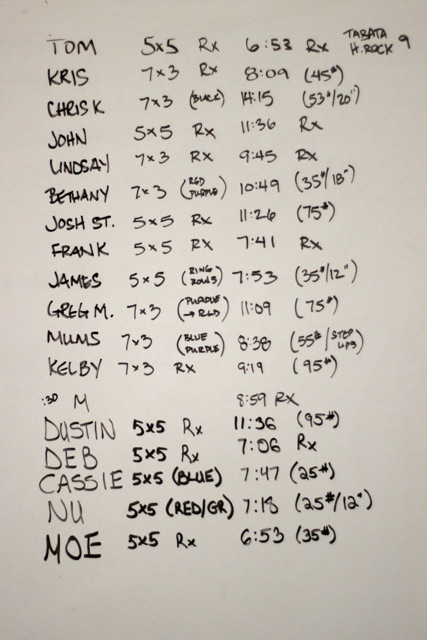 TOM 5x5 Rx 6:53 Rx TABATA H. ROCK 9
KRIS 7x3 Rx 8:09 (45#)
CHRIS K 7x3 (BLUE) 14:15 (53#/20")
JOHN 5x5 Rx 11:36 Rx
LINDSAY 7x3 Rx 9:45 Rx
BETHANY 7x3 (RED PURPLE) 10:49 (35#/18")
JOSH ST. 5x5 Rx 11:26 (75#)
FRANK 5x5 Rx 7:41 Rx
JAMES 5x5 (RING ROWS) 7:53 (35#/12")
GREG M. 7x3 (PURPLE → RED) 11:09 (75#)
MUMS 7x3 (BLUE PURPLE) 8:38 (55#/STEP UPS)
KELBY 7x3 Rx 9:19 (95#)
:30 M 8:59 RX
DUSTIN 5x5 Rx 11:36 (95#)
DEB 5x5 Rx 7:06 Rx
CASSIE 5x5 (BLUE) 7:47 (25#)
NU 5x5 (RED/GR) 7:18 (25#/12")
MOE 5x5 Rx 6:53 (35#)